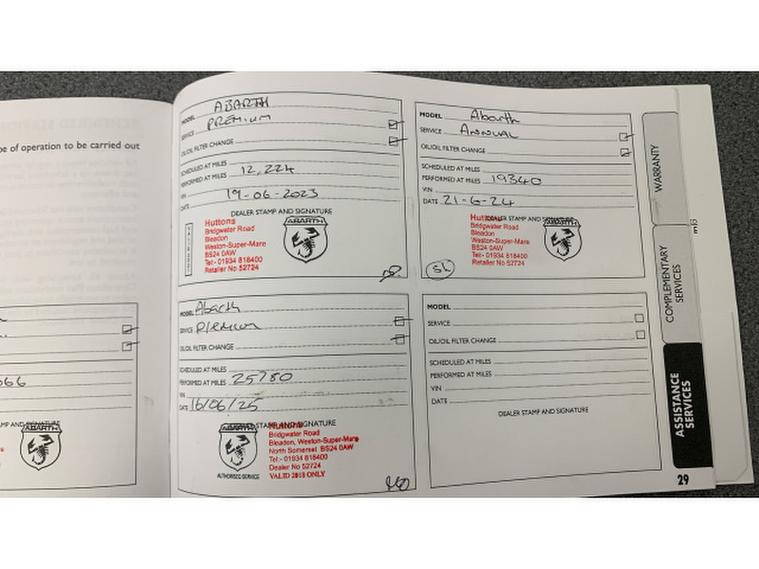 pe of operation to be carried out
066
AUTHORISED
MODEL ABARTH
SERVICE PREMIUM
OIL/OIL FILTER CHANGE
SCHEDULED AT MILES
PERFORMED AT MILES 12,224
VIN
DATE 19-06-2023
DEALER STAMP AND SIGNATURE
Huttons
Bridgwater Road
Bleadon
Weston-Super-Mare
BS24 0AW
Tel:- 01934 818400
Retailer No 52724
ABARTH
MODEL Abarth
SERVICE Annual
OIL/OIL FILTER CHANGE
SCHEDULED AT MILES
PERFORMED AT MILES 19340
VIN
DATE 21-6-24
DEALER STAMP AND SIGNATURE
Huttons
Bridgwater Road
Bleadon
Weston-Super-Mare
BS24 0AW
Tel:- 01934 818400
Retailer No 52724
ABARTH
SL
MODEL Abarth
SERVICE Premium
OIL/OIL FILTER CHANGE
SCHEDULED AT MILES
PERFORMED AT MILES 25780
VIN
DATE 16/06/25
DEALER STAMP AND SIGNATURE
ABARTH
AUTHORISED SERVICE
Huttons
Bridgwater Road
Bleadon, Weston-Super-Mare
North Somerset BS24 0AW
Tel:- 01934 818400
Dealer No 52724
VALID 2018 ONLY
MODEL
SERVICE
OIL/OIL FILTER CHANGE
SCHEDULED AT MILES
PERFORMED AT MILES
VIN
DATE
DEALER STAMP AND SIGNATURE
WARRANTY
COMPLEMENTARY
SERVICES
ASSISTANCE
SERVICES
29